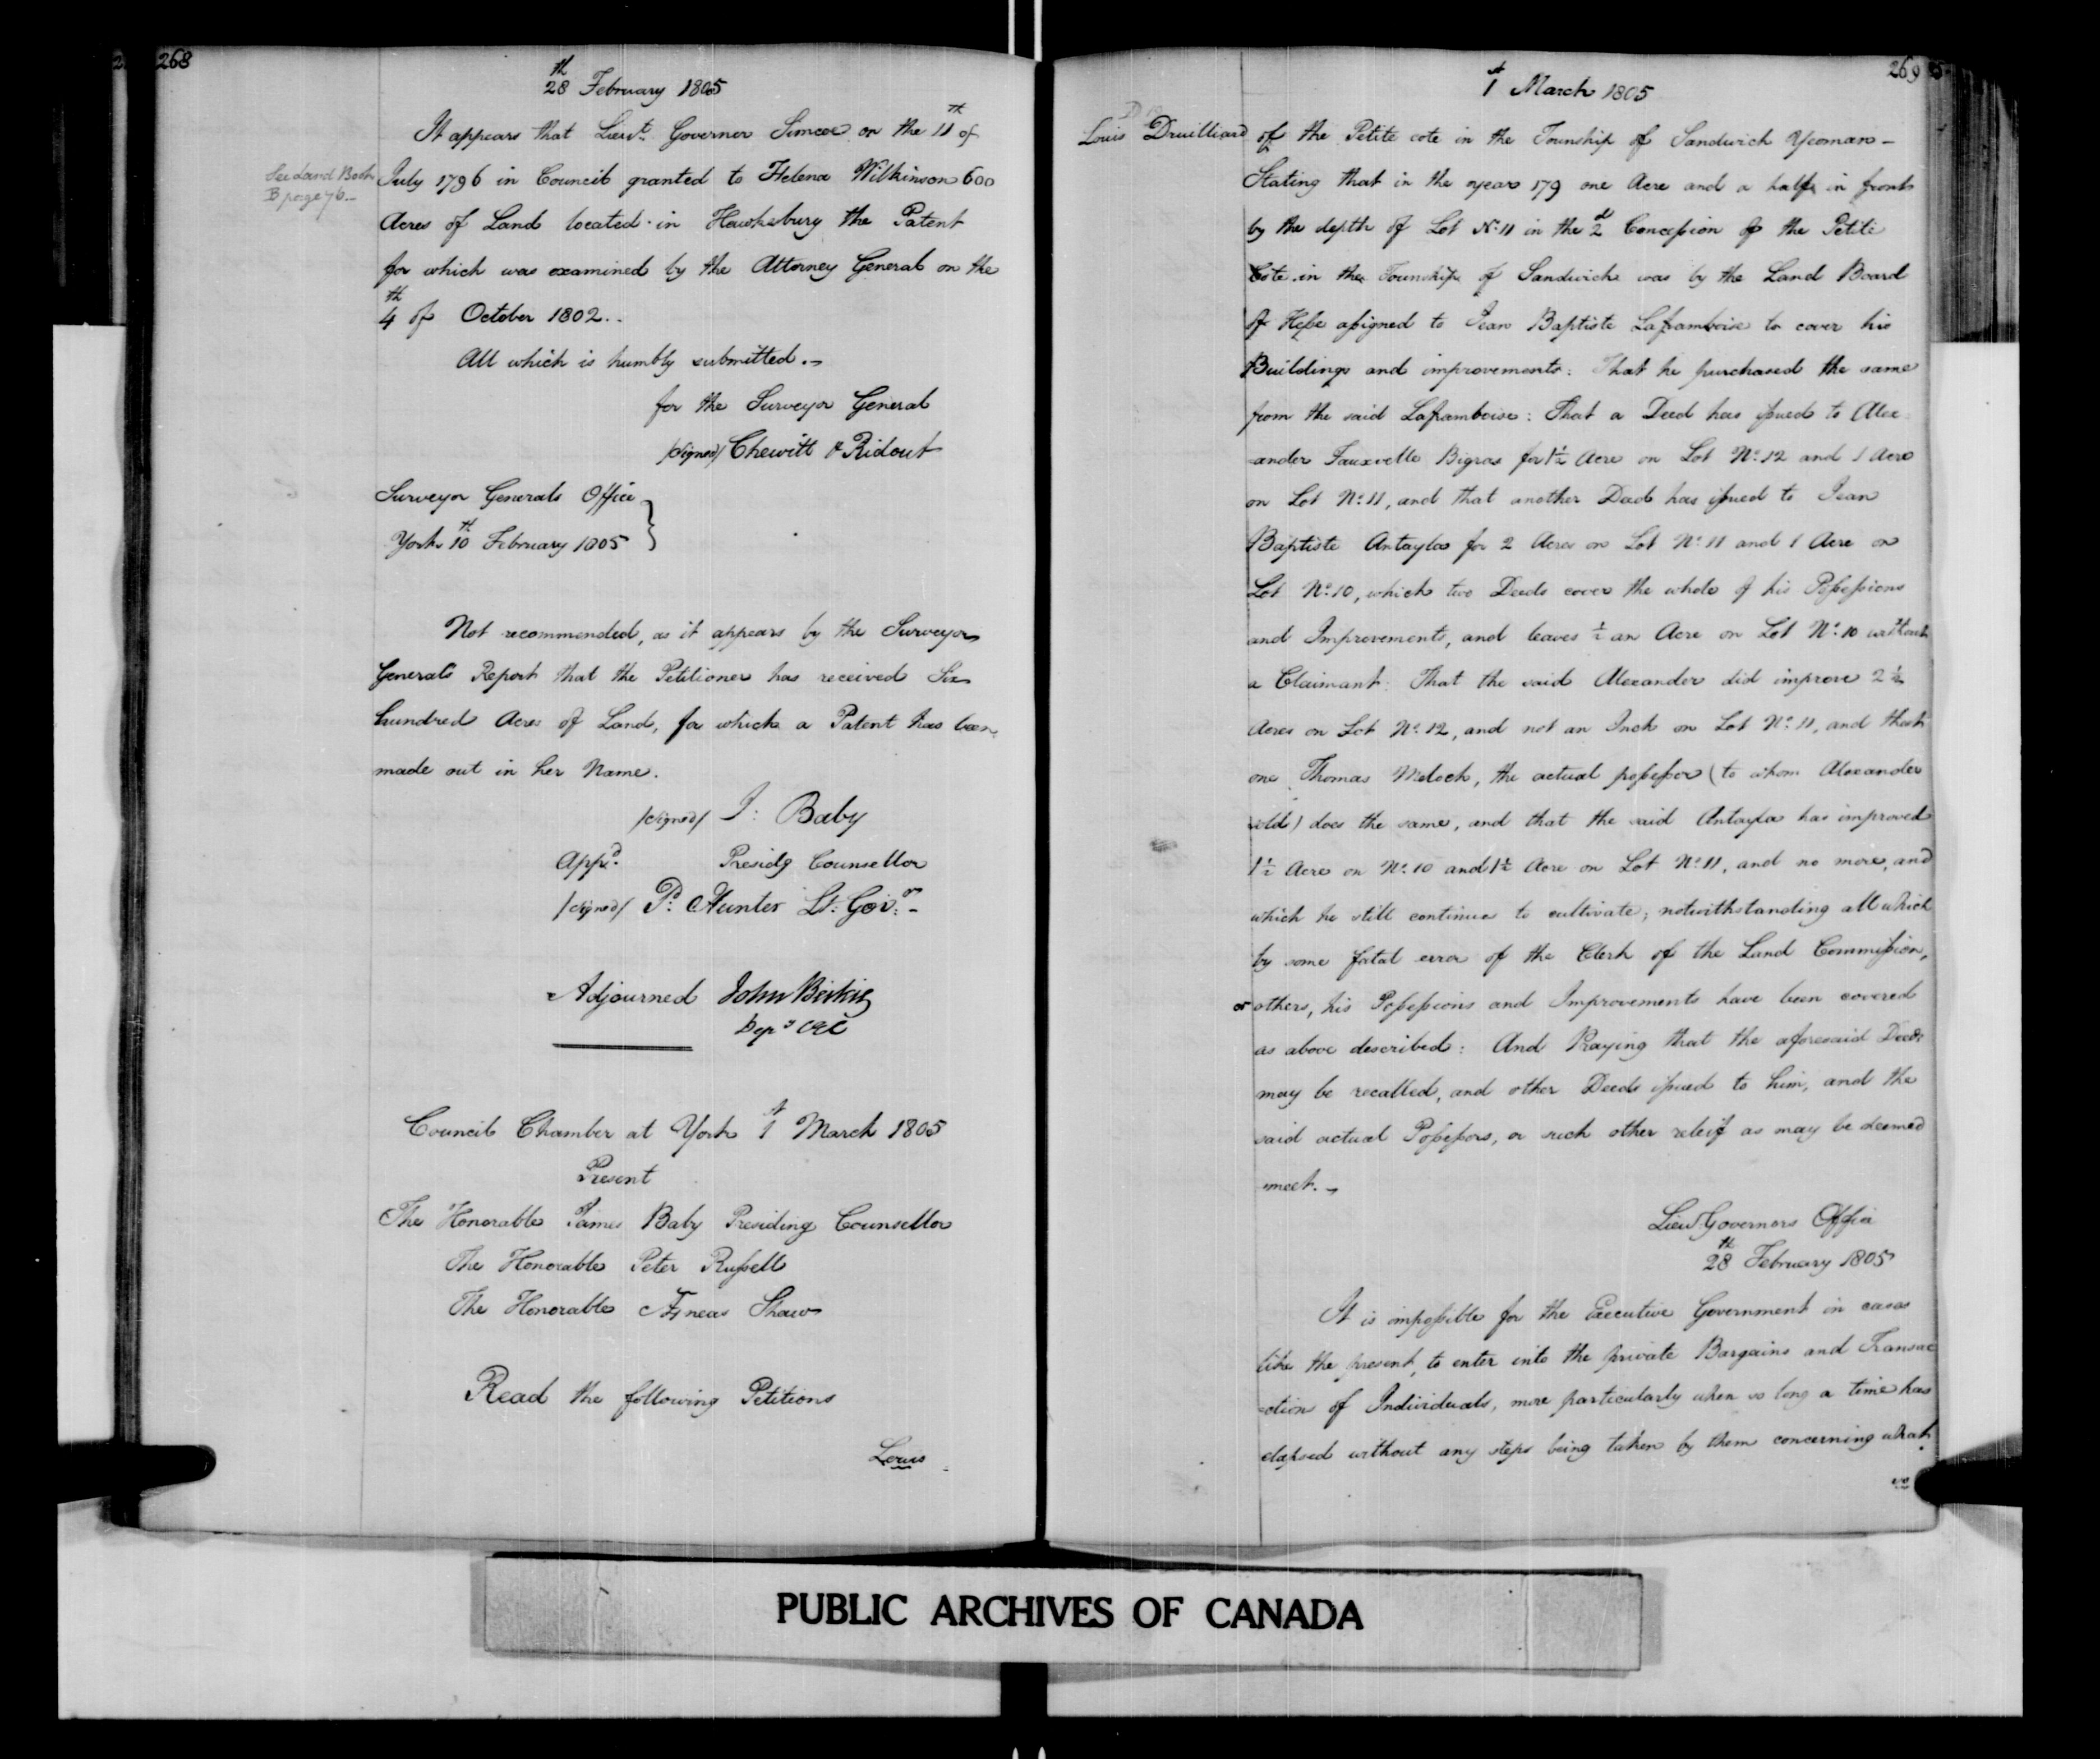 268
28th February 1805
It appears that Lieut. Governor Simcoe on the 11th of
See Land Book
B page 76.
July 1796 in Council granted to Helena Wilkinson 600
Acres of Land located in Hawksbury the Patent
for which was examined by the Attorney General on the
4th of October 1802..
All which is humbly submitted.
for the Surveyor General
/signed/ Chewitt & Ridout
Surveyor Generals Office
York 10th February 1805
Not recommended, as it appears by the Surveyor
Generals Report that the Petitioner has received Six
hundred Acres of Land, for which a Patent has been
made out in her Name.
/signed/ J: Baby
Appd. Presidg Counsellor
/signed/ P: Hunter Lt: Govor: -
Adjourned John Beikie
Depy CEC
Council Chamber at York 1st March 1805
Present
The Honorable James Baby Presiding Counsellor
The Honorable Peter Russell
The Honorable Æneas Shaw
Read the following Petitions
Louis
269
1st March 1805
Louis Druilliard of the Petite cote in the Township of Sandwich Yeoman -
Stating that in the year 179 one Acre and a half in front
by the depth of Lot No. 11 in the 2d Concession of the Petite
Cote in the Township of Sandwich was by the Land Board
of Hesse assigned to Jean Baptiste Laframboise to cover his
Buildings and improvements: That he purchased the same
from the said Laframboise: That a Deed has issued to Alex
=ander Bigras for 1½ Acre on Lot No. 12 and 1 Acre
on Lot No. 11, and that another Deed has issued to Jean
Baptiste Antayla for 2 Acres on Lot No. 11 and 1 Acre on
Lot No. 10, which two Deeds cover the whole of his Possessions
and Improvements, and leaves ½ an Acre on Lot No. 10 without
a Claimant: That the said Alexander did improve 2½
Acres on Lot No. 12, and not an Inch on Lot No. 11, and that
one Thomas Meloch, the actual possessor (to whom Alexander
sold) does the same, and that the said Antayla has improved
1½ Acre on No. 10 and 1½ Acre on Lot No. 11, and no more, and
which he still continues to cultivate; notwithstanding all which
by some fatal error of the Clerk of the Land Commission,
or others, his Possessions and Improvements have been covered
as above described: And Praying that the aforesaid Deeds
may be recalled, and other Deeds issued to him, and the
said actual Possessors, or such other releif as may be deemed
meet.
Lieut. Governors Office
28th February 1805
It is impossible for the Executive Government in cases
like the present, to enter into the private Bargains and Transac
=tion of Individuals, more particularly when so long a time has
elapsed without any steps being taken by them concerning what
PUBLIC ARCHIVES OF CANADA